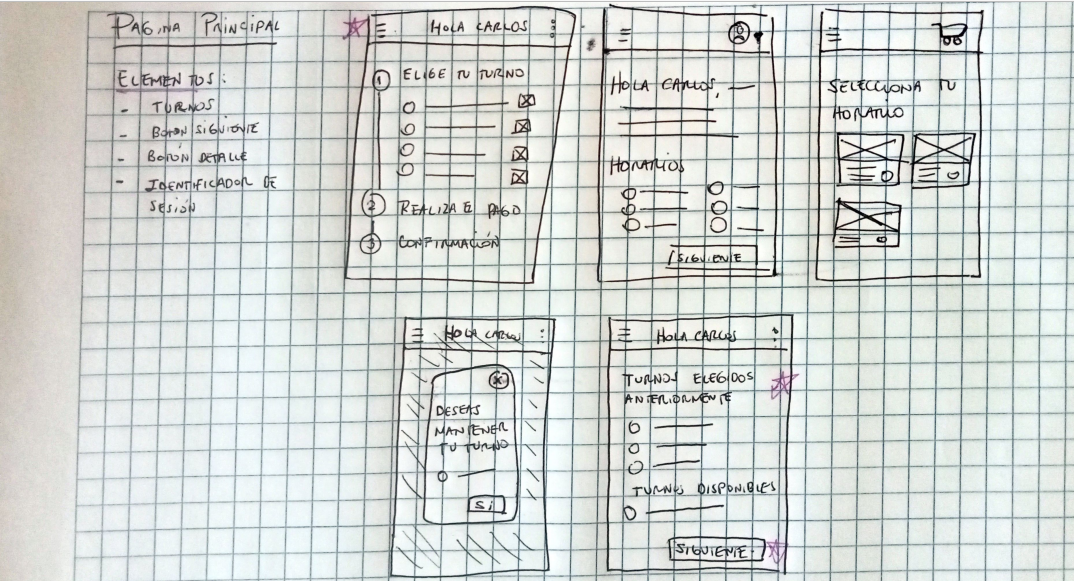 PAGINA PRINCIPAL
ELEMENTOS:
- TURNOS
- BOTON SIGUIENTE
- BOTON DETALLE
- IDENTIFICADOR DE
SESIÓN
HOLA CARLOS
1 ELIGE TU TURNO
2 REALIZA EL PAGO
3 CONFIRMACIÓN
HOLA CARLOS,
HORARIOS
SIGUIENTE
SELECCIONA TU
HORARIO
HOLA CARLOS
DESEAS
MANTENER
TU TURNO
SI
HOLA CARLOS
TURNOS ELEGIDOS
ANTERIORMENTE
TURNOS DISPONIBLES
SIGUIENTE